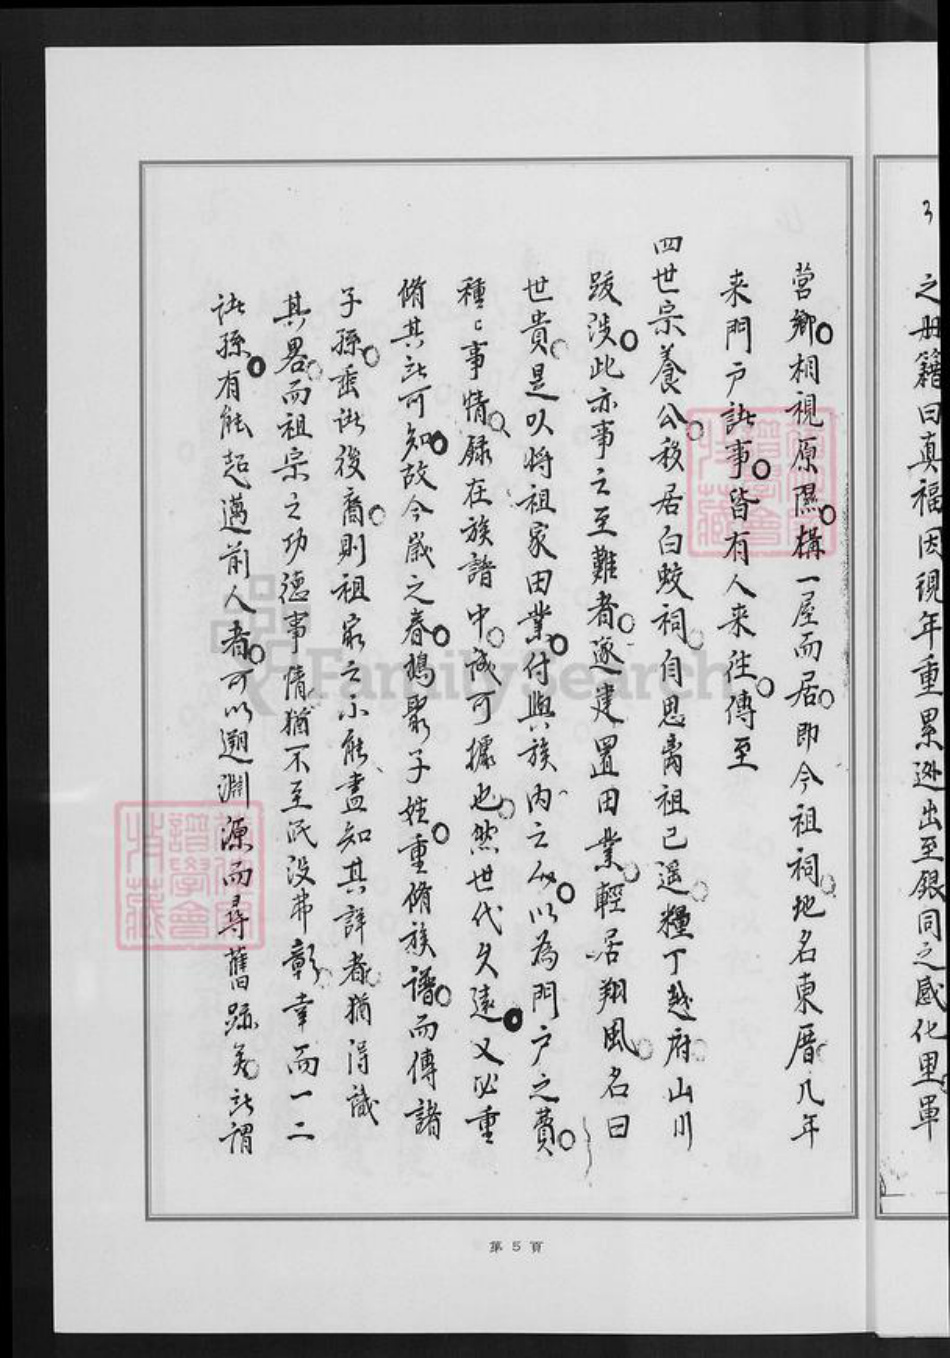 3
之册籍曰真福因現年重累逊出至銀同之感化里軍
营鄉相視原隰構一屋而居即今祖祠地名東厝几年
来門户訿事皆有人来往傳至
四世宗養公移居白蛟祠自思离祖已遥糧丁越府山川
跋涉此亦事之至難者逐建置田業輕居翔風名曰
世貴是以将祖家田業付與族内之人以為門户之費
種〻事情録在族譜中诚可據也然世代久遠又必重
脩其訿可知故今歲之春鳩聚子姓重脩族譜而傳諸
子孫垂訿後裔則祖家之不能盡知其詳者猶得識
其畧而祖宗之功德事情猶不至泯没弗彰幸而一二
訿孫有能起邁前人者可以遡淵源而尋舊跡矣訿謂
第 5 頁
FamilySearch